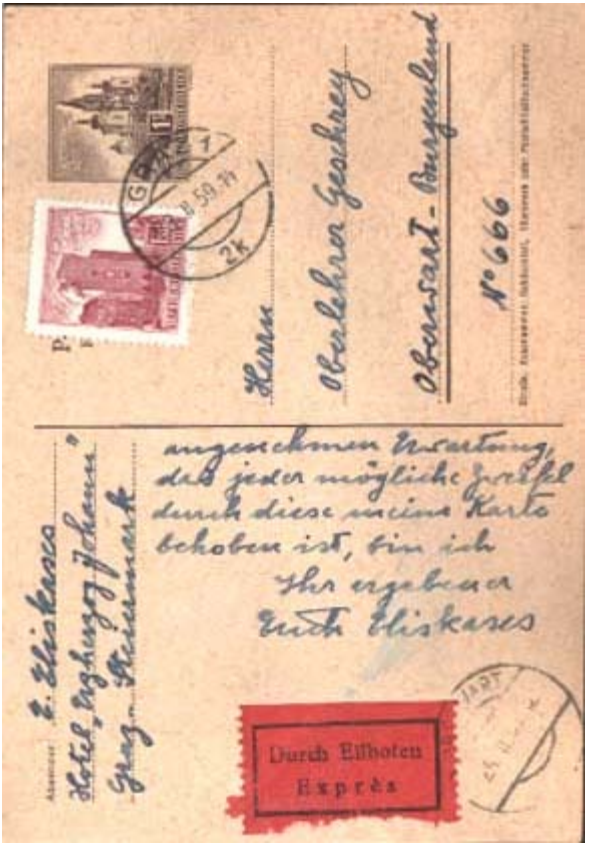 1S
GRAZ 1
8.59.14
2k
Herrn
Oberlehrer Geschrey
Oberwart - Burgenland
N° 666
Absender:
E. Eliskases
Hotel „Erzherzog Johann"
Graz - Steiermark
angenehmen Erwartung,
das jeder mögliche Zweifel
durch diese meine Karte
behoben ist, bin ich
Ihr ergebener
Erich Eliskases
Durch Eilboten
Exprès
WART